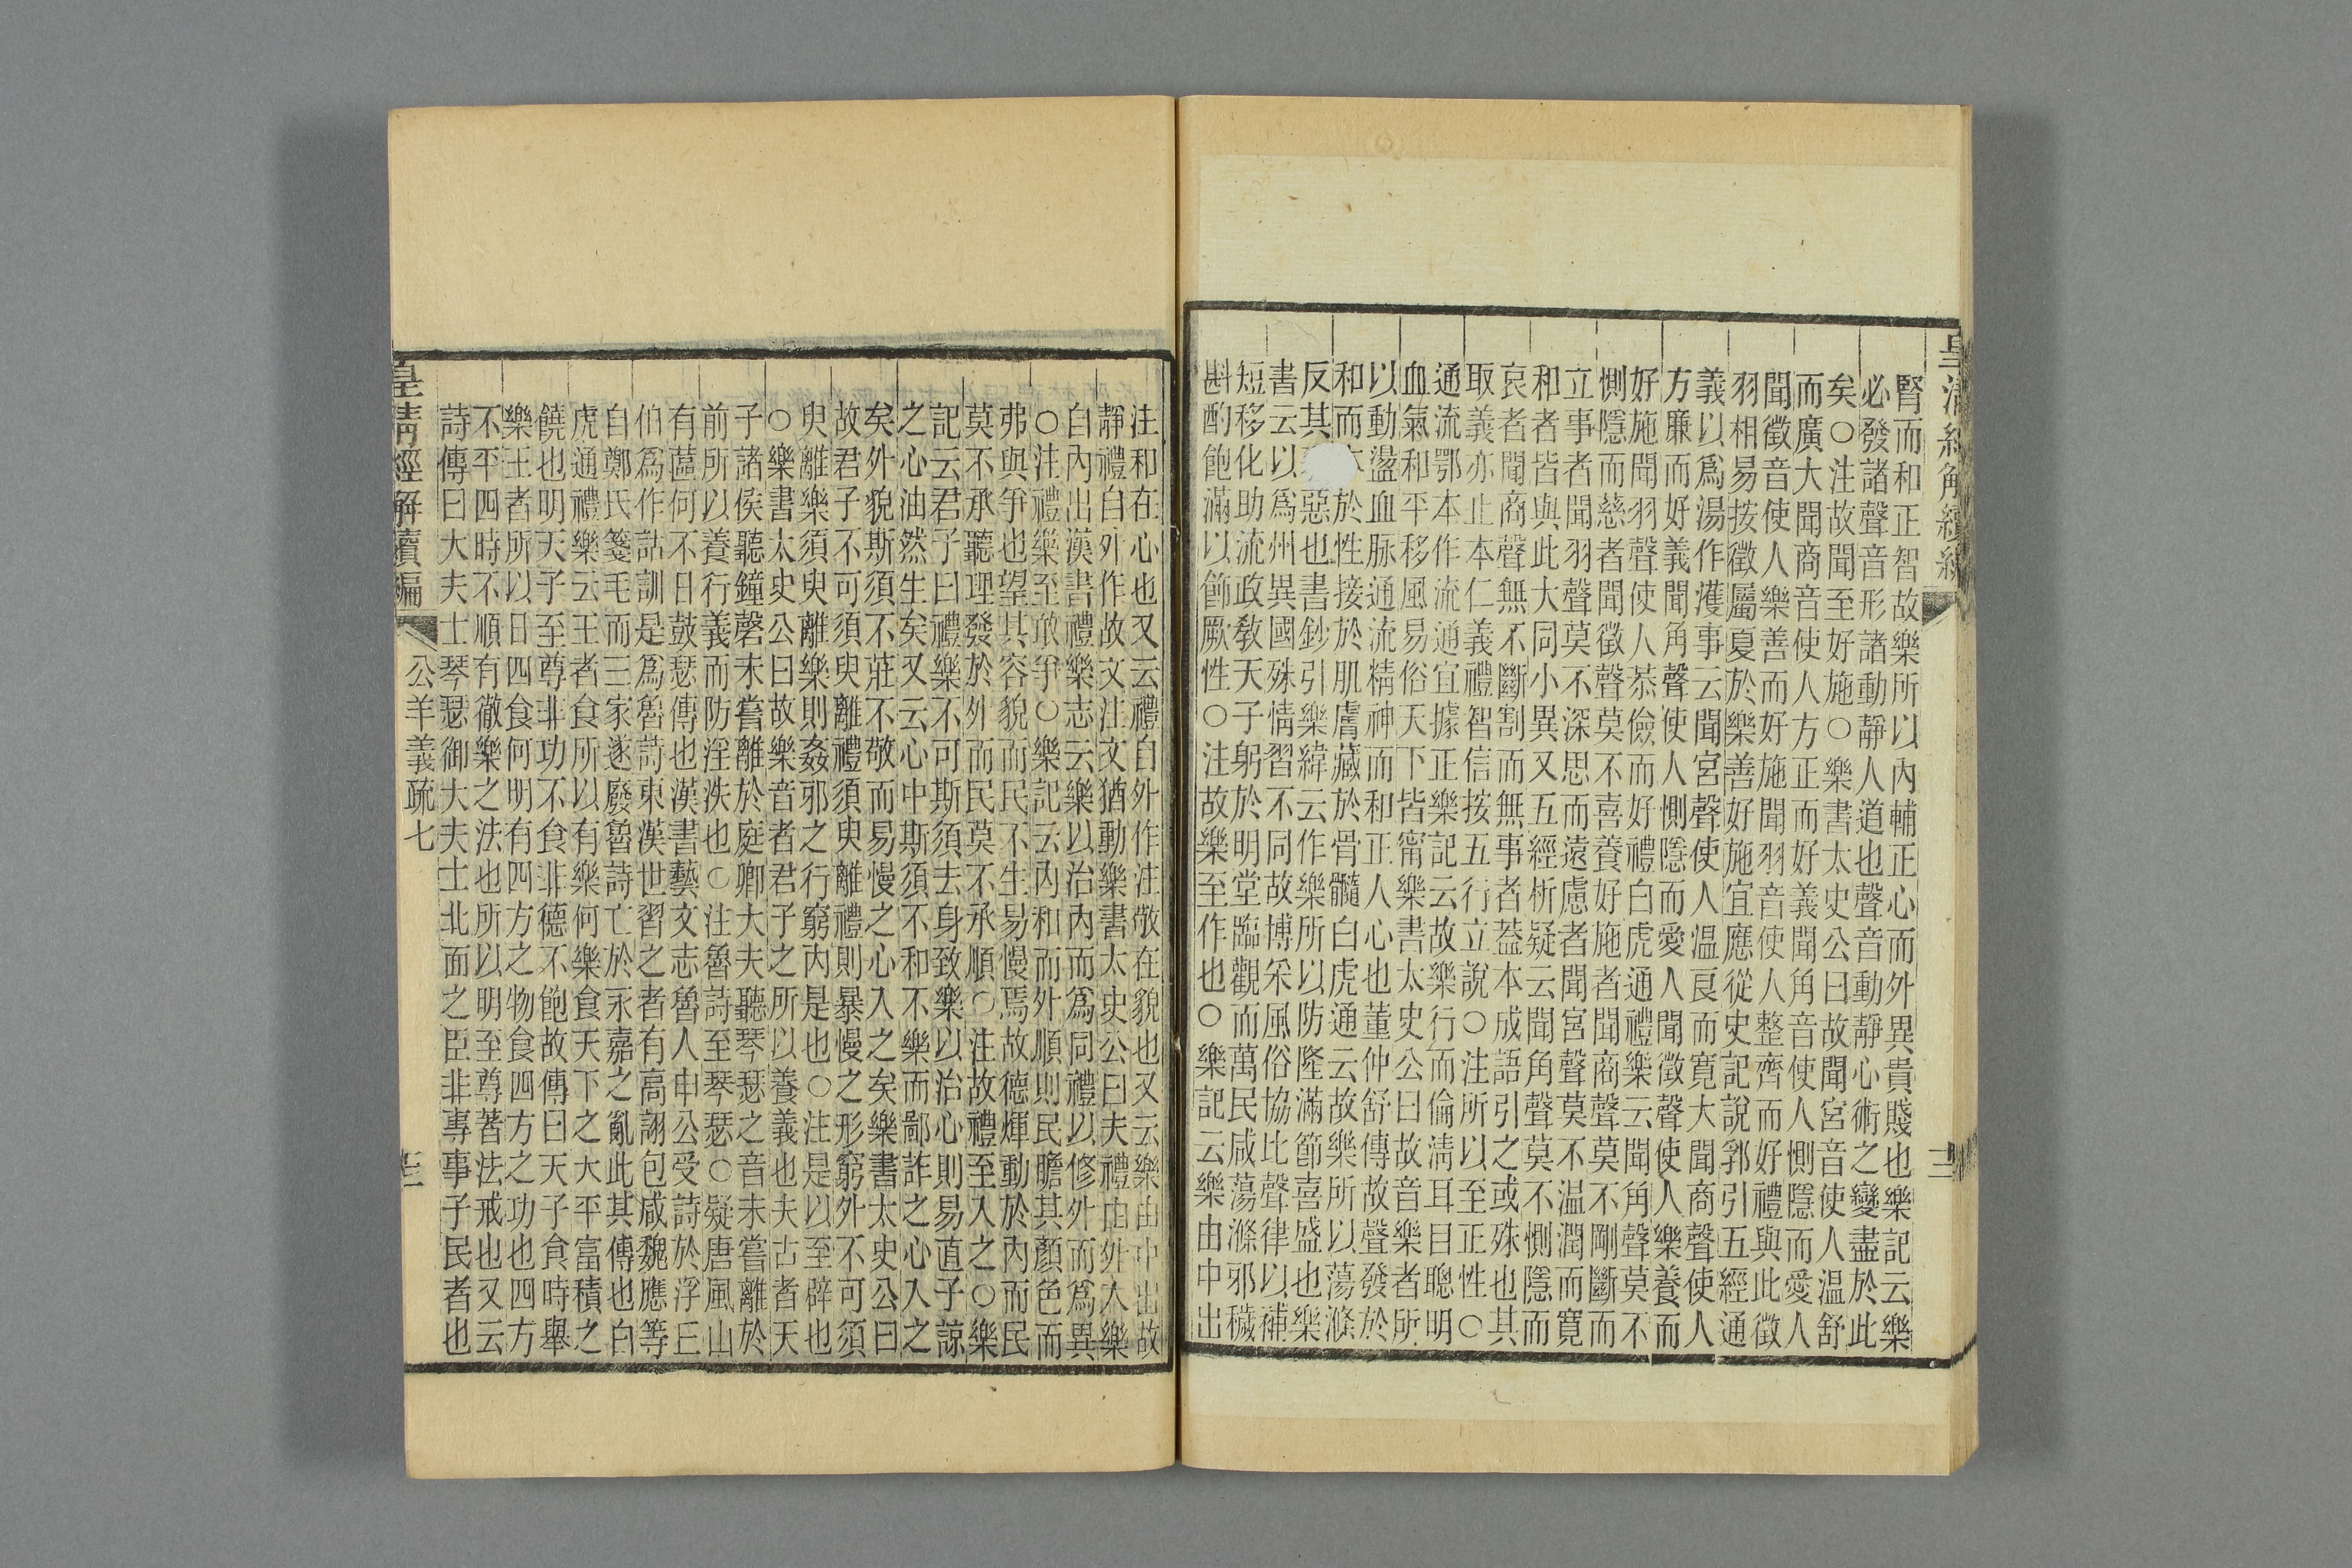 腎而和正智故樂所以內輔正心而外異貴賤也樂記云樂
必發諸聲音形諸動靜人道也聲音動靜心術之變盡於此
矣○注故聞至好施○樂書太史公曰故聞宮音使人温舒
而廣大聞商音使人方正而好義聞角音使人惻隱而愛人
聞徵音使人樂善而好施聞羽音使人整齊而好禮與此徵
羽相易按徵屬夏於樂善好施宜應從史記說郛引五經通
義以爲湯作濩事云聞宮聲使人温良而寬大聞商聲使人
方廉而好義聞角聲使人惻隱而愛人聞徵聲使人樂養而
好施聞羽聲使人恭儉而好禮白虎通禮樂云聞角聲莫不
惻隱而慈者聞徵聲莫不喜養好施者聞商聲莫不剛斷而
立事者聞羽聲莫不深思而遠慮者聞宮聲莫不温潤而寬
和者皆與此大同小異又五經析疑云聞角聲莫不惻隱而
哀者聞商聲無不斷割而無事者葢本成語引之或殊也其
取義亦止本仁義禮智信按五行立說○注所以至正性○
通流鄂本作流通宜據正樂記云故樂行而倫淸耳目聰明
血氣和平移風易俗天下皆甯樂書太史公曰故音樂者所
以動盪血脉通流精神而和正人心也董仲舒傳故聲發於
和而本於性接於肌膚藏於骨髓白虎通云故樂所以蕩滌
反其惡也書鈔引樂緯云作樂所以防隆滿節喜盛也樂
書云以爲州異國殊情習不同故博采風俗協比聲律以補
短移化助流政敎天子躬於明堂臨觀而萬民咸蕩滌邪穢
斟酌飽滿以飾厥性○注故樂至作也○樂記云樂由中出
注和在心也又云禮自外作注敬在貌也又云樂由中出故
靜禮自外作故文注文猶動樂書太史公曰夫禮由外入樂
自內出漢書禮樂志云樂以治內而爲同禮以修外而爲異
○注禮樂至敢爭○樂記云內和而外順則民瞻其顏色而
弗與爭也望其容貌而民不生易慢焉故德煇動於內而民
莫不承聽理發於外而民莫不承順○注故禮至入之○樂
記云君子曰禮樂不可斯須去身致樂以治心則易直子諒
之心油然生矣又云心中斯須不和不樂而鄙詐之心入之
矣外貌斯須不莊不敬而易慢之心入之矣樂書太史公曰
故君子不可須臾離禮須臾離禮則暴慢之形窮外不可須
臾離樂須臾離樂則姦邪之行窮內是也○注是以至辟也
○樂書太史公曰故樂音者君子之所以養義也夫古者天
子諸侯聽鐘磬未嘗離於庭卿大夫聽琴瑟之音未嘗離於
前所以養行義而防淫泆也○注魯詩至琴瑟○疑唐風山
有蓲何不日鼓瑟傳也漢書藝文志魯人申公受詩於浮
伯爲作詁訓是爲魯詩東漢世習之者有高詡包咸魏應等
自鄭氏箋毛而三家遂廢魯詩亡於永嘉之亂此其傳也白
虎通禮樂云王者食所以有樂何樂食天下之大平富積之
饒也明天子至尊非功不食非德不飽故傳曰天子食時舉
樂王者所以日四食何明有四方之物食四方之功也四方
不平四時不順有徹樂之法也所以明至尊著法戒也又云
詩傳曰大夫士琴瑟御大夫士北面之臣非專事子民者也
皇淸經解續編 公羊義疏七